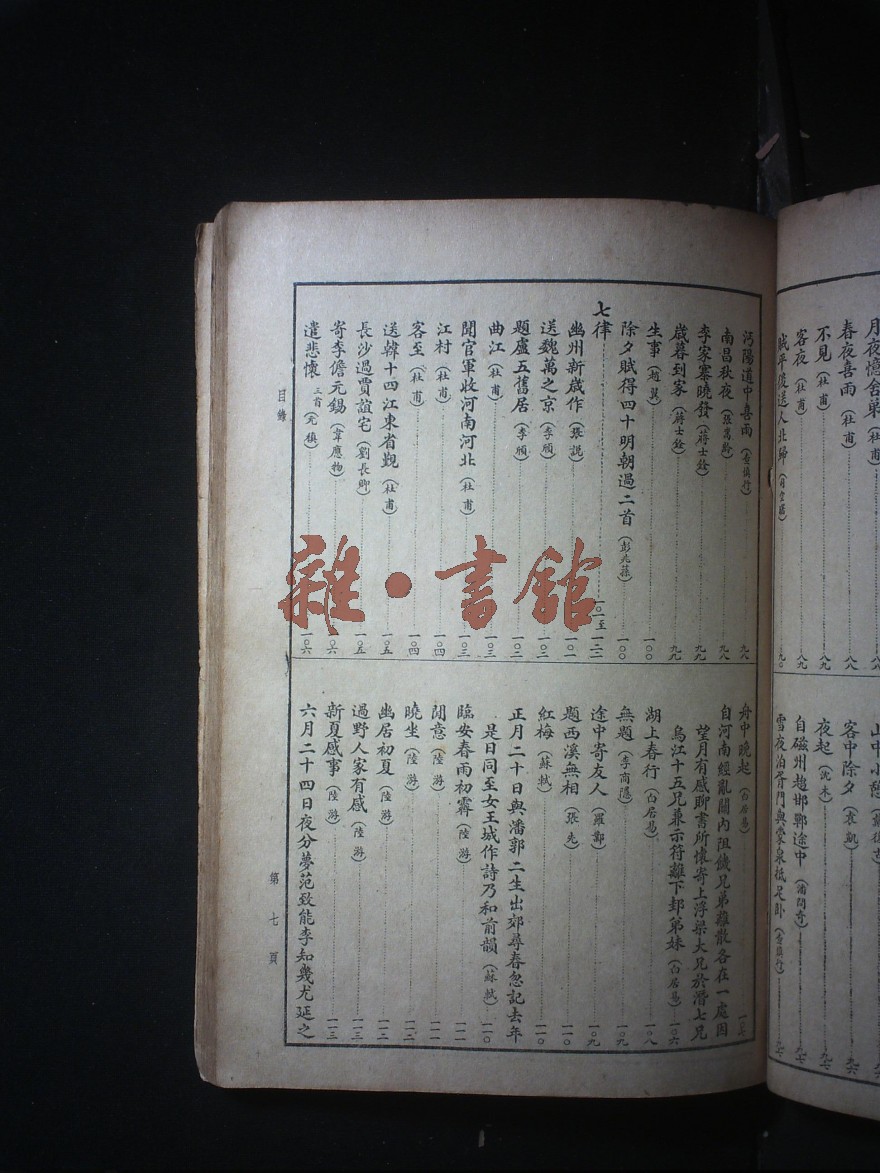 月夜憶舍弟（杜甫）八八
春夜喜雨（杜甫）八八
不見（杜甫）八九
客夜（杜甫）八九
賊平後送人北歸（司空曙）九〇
客中除夕（袁凱）九六
夜起（沈朱）九七
自磁州趨邯鄲途中
雪夜泊胥門與蒙泉抵足卧
沔陽道中喜雨 九八
南昌秋夜 九八
李家寨曉發（蔣士銓）九九
歲暮到家（蔣士銓）九九
生事（趙翼）一〇〇
除夕賦得四十明朝過二首（彭兆蓀）一〇〇
七律 一〇一至一二二
幽州新歲作（張說）一〇一
送魏萬之京（李頎）一〇二
題盧五舊居（李頎）一〇二
曲江（杜甫）一〇三
聞官軍收河南河北（杜甫）一〇三
江村（杜甫）一〇四
客至（杜甫）一〇四
送韓十四江東省覲（杜甫）一〇五
長沙過賈誼宅（劉長卿）一〇五
寄李儋元錫（韋應物）一〇六
遣悲懷 三首（元稹）一〇六
舟中晚起（白居易）
自河南經亂關內阻饑兄弟離散各在一處因
望月有感聊書所懷寄上浮梁大兄於潛七兄
烏江十五兄兼示符離下邽弟妹（白居易）
湖上春行（白居易）一〇八
無題（李商隱）一〇九
途中寄友人（羅鄴）一〇九
題西溪無相（張先）一一〇
紅梅（蘇軾）一一〇
正月二十日與潘郭二生出郊尋春忽記去年
是日同至女王城作詩乃和前韻（蘇軾）一一〇
臨安春雨初霽（陸游）一一一
閒意（陸游）一一一
曉坐（陸游）一一二
幽居初夏（陸游）一一二
過野人家有感（陸游）一一三
新夏感事（陸游）一一三
六月二十四日夜分夢范致能李知幾尤延之
目錄
第七頁
雜·書館